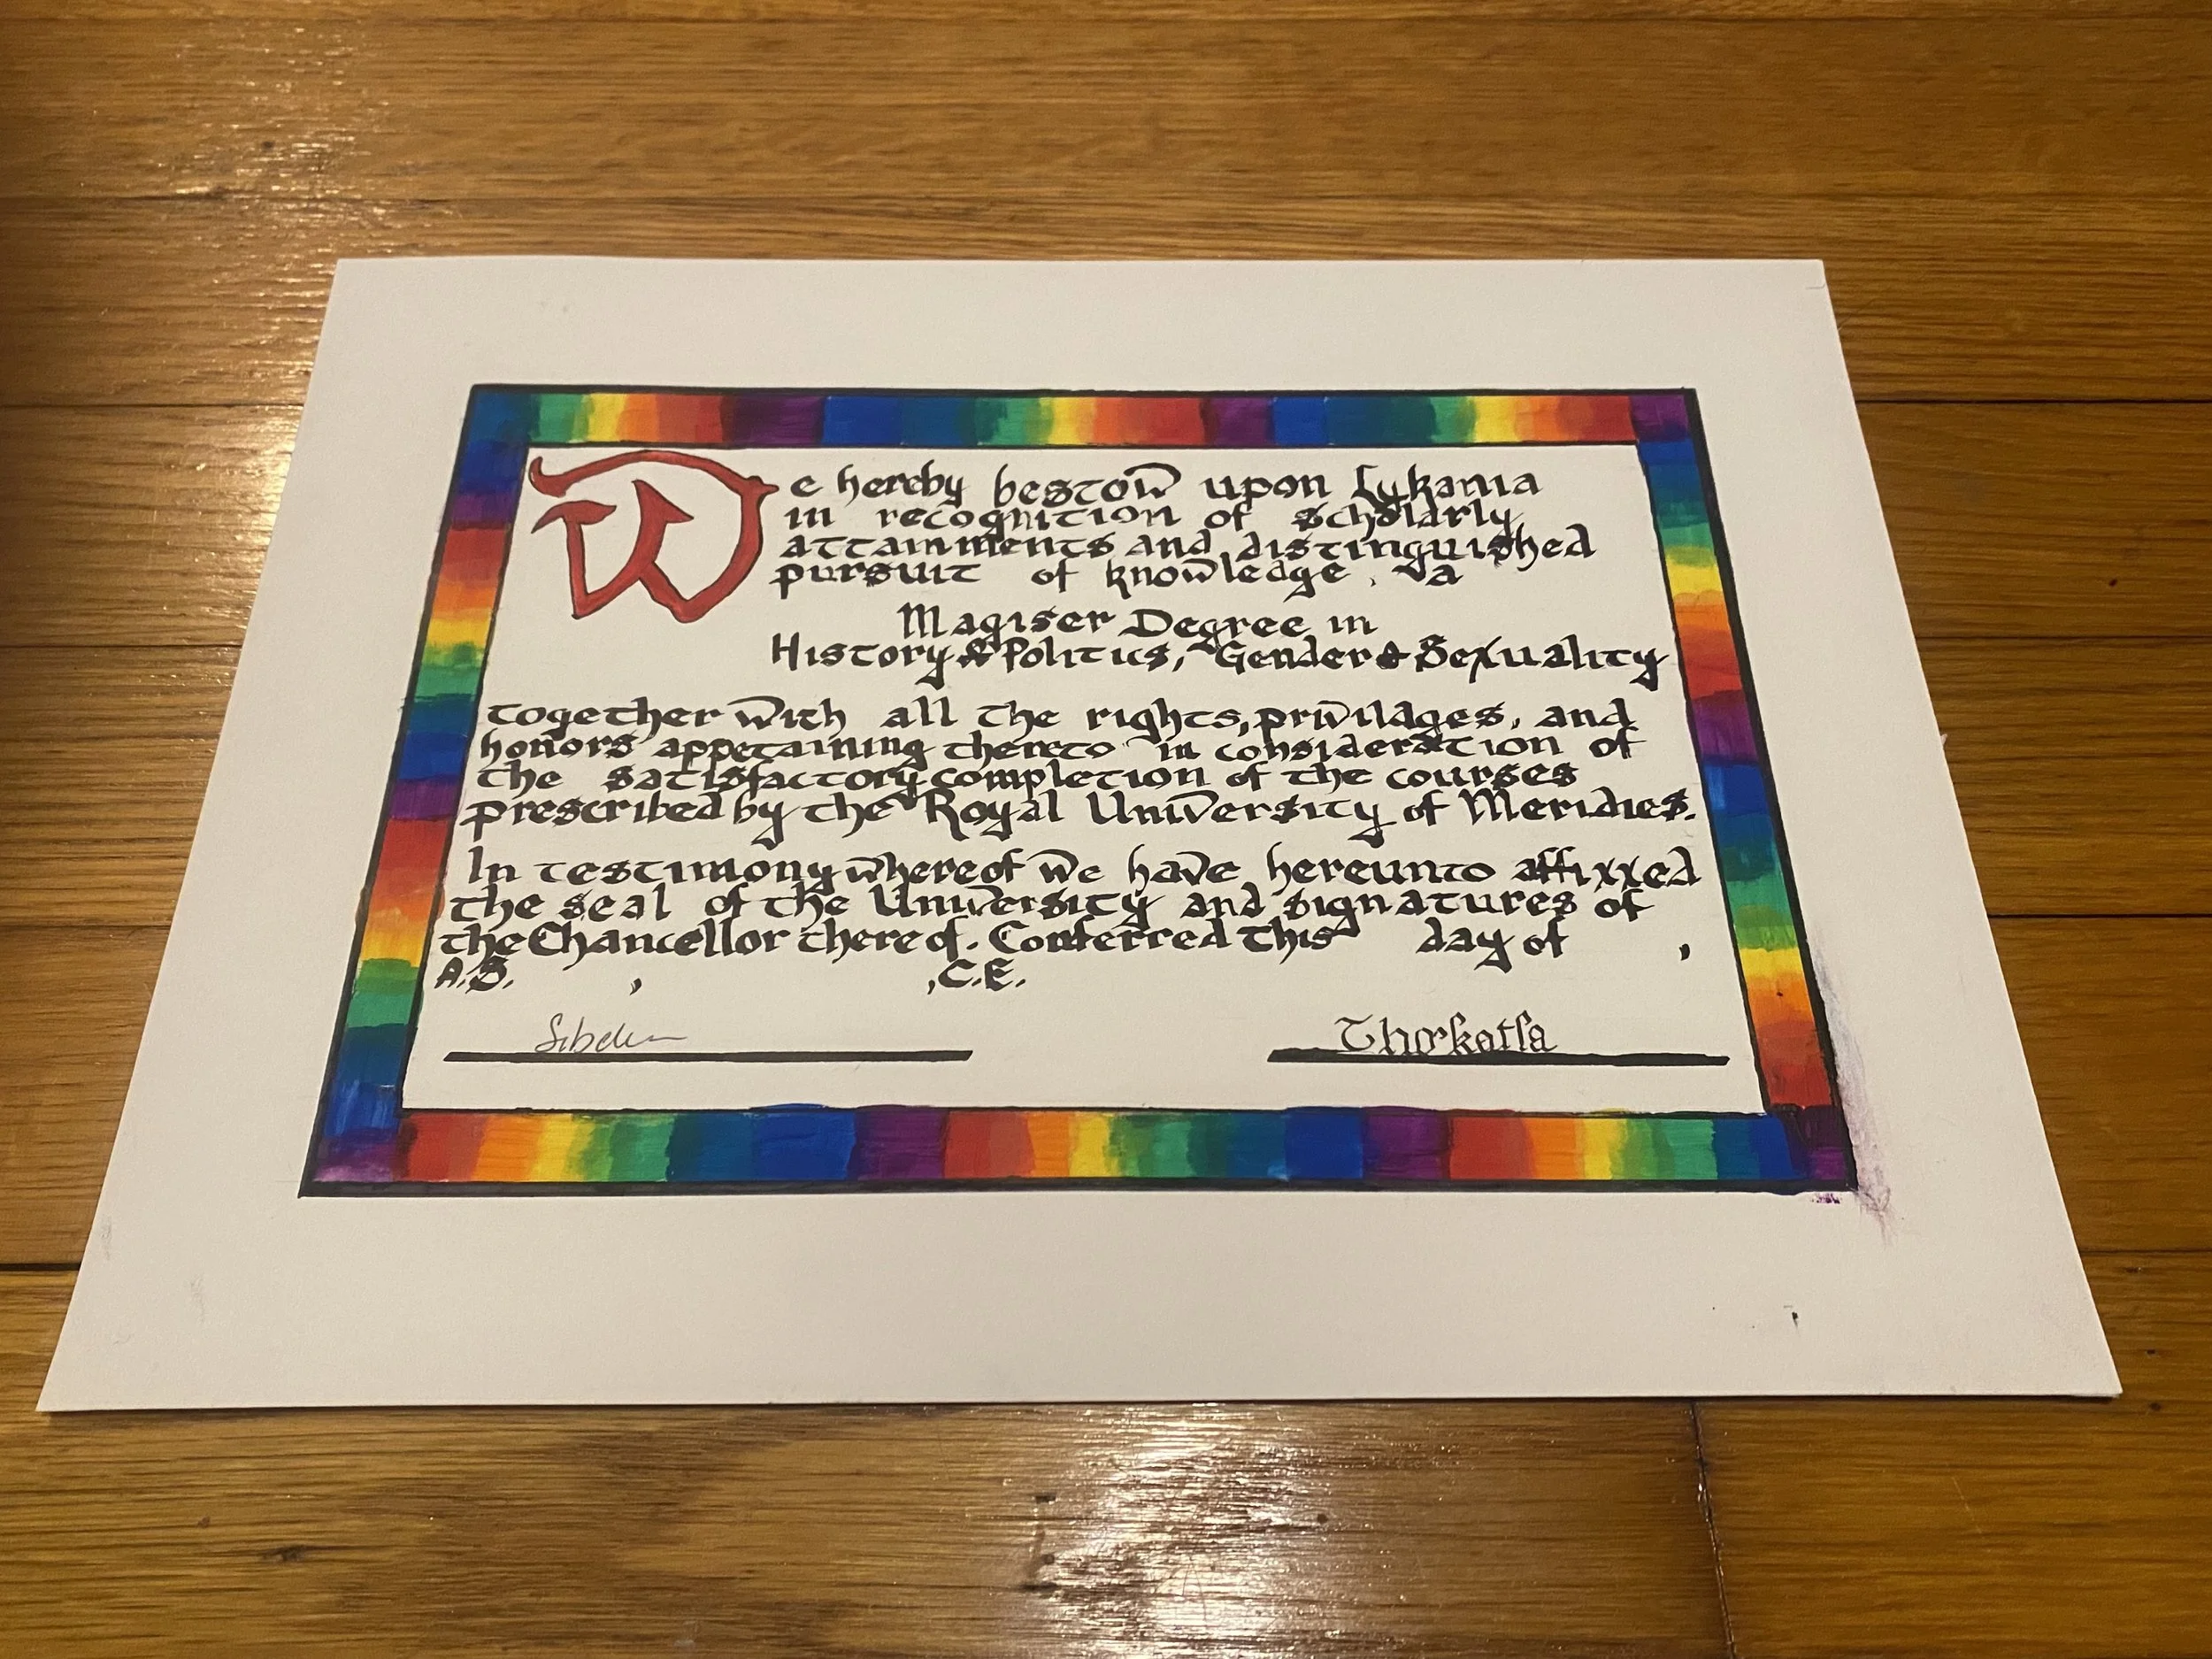 We hereby bestow upon Lykania
in recognition of scholarly
attainments and distinguished
pursuit of knowledge, a
Magiser Degree in
History & Politics, Gender & Sexuality
together with all the rights, privilages, and
honors appetaining thereto in consideration of
the satisfactory completion of the courses
prescribed by the Royal University of Meridies.
In testimony whereof we have hereunto affixxed
the seal of the University and signatures of
the Chancellor thereof. Conferred this day of ,
A.S. , , C.E.
Thorkatla